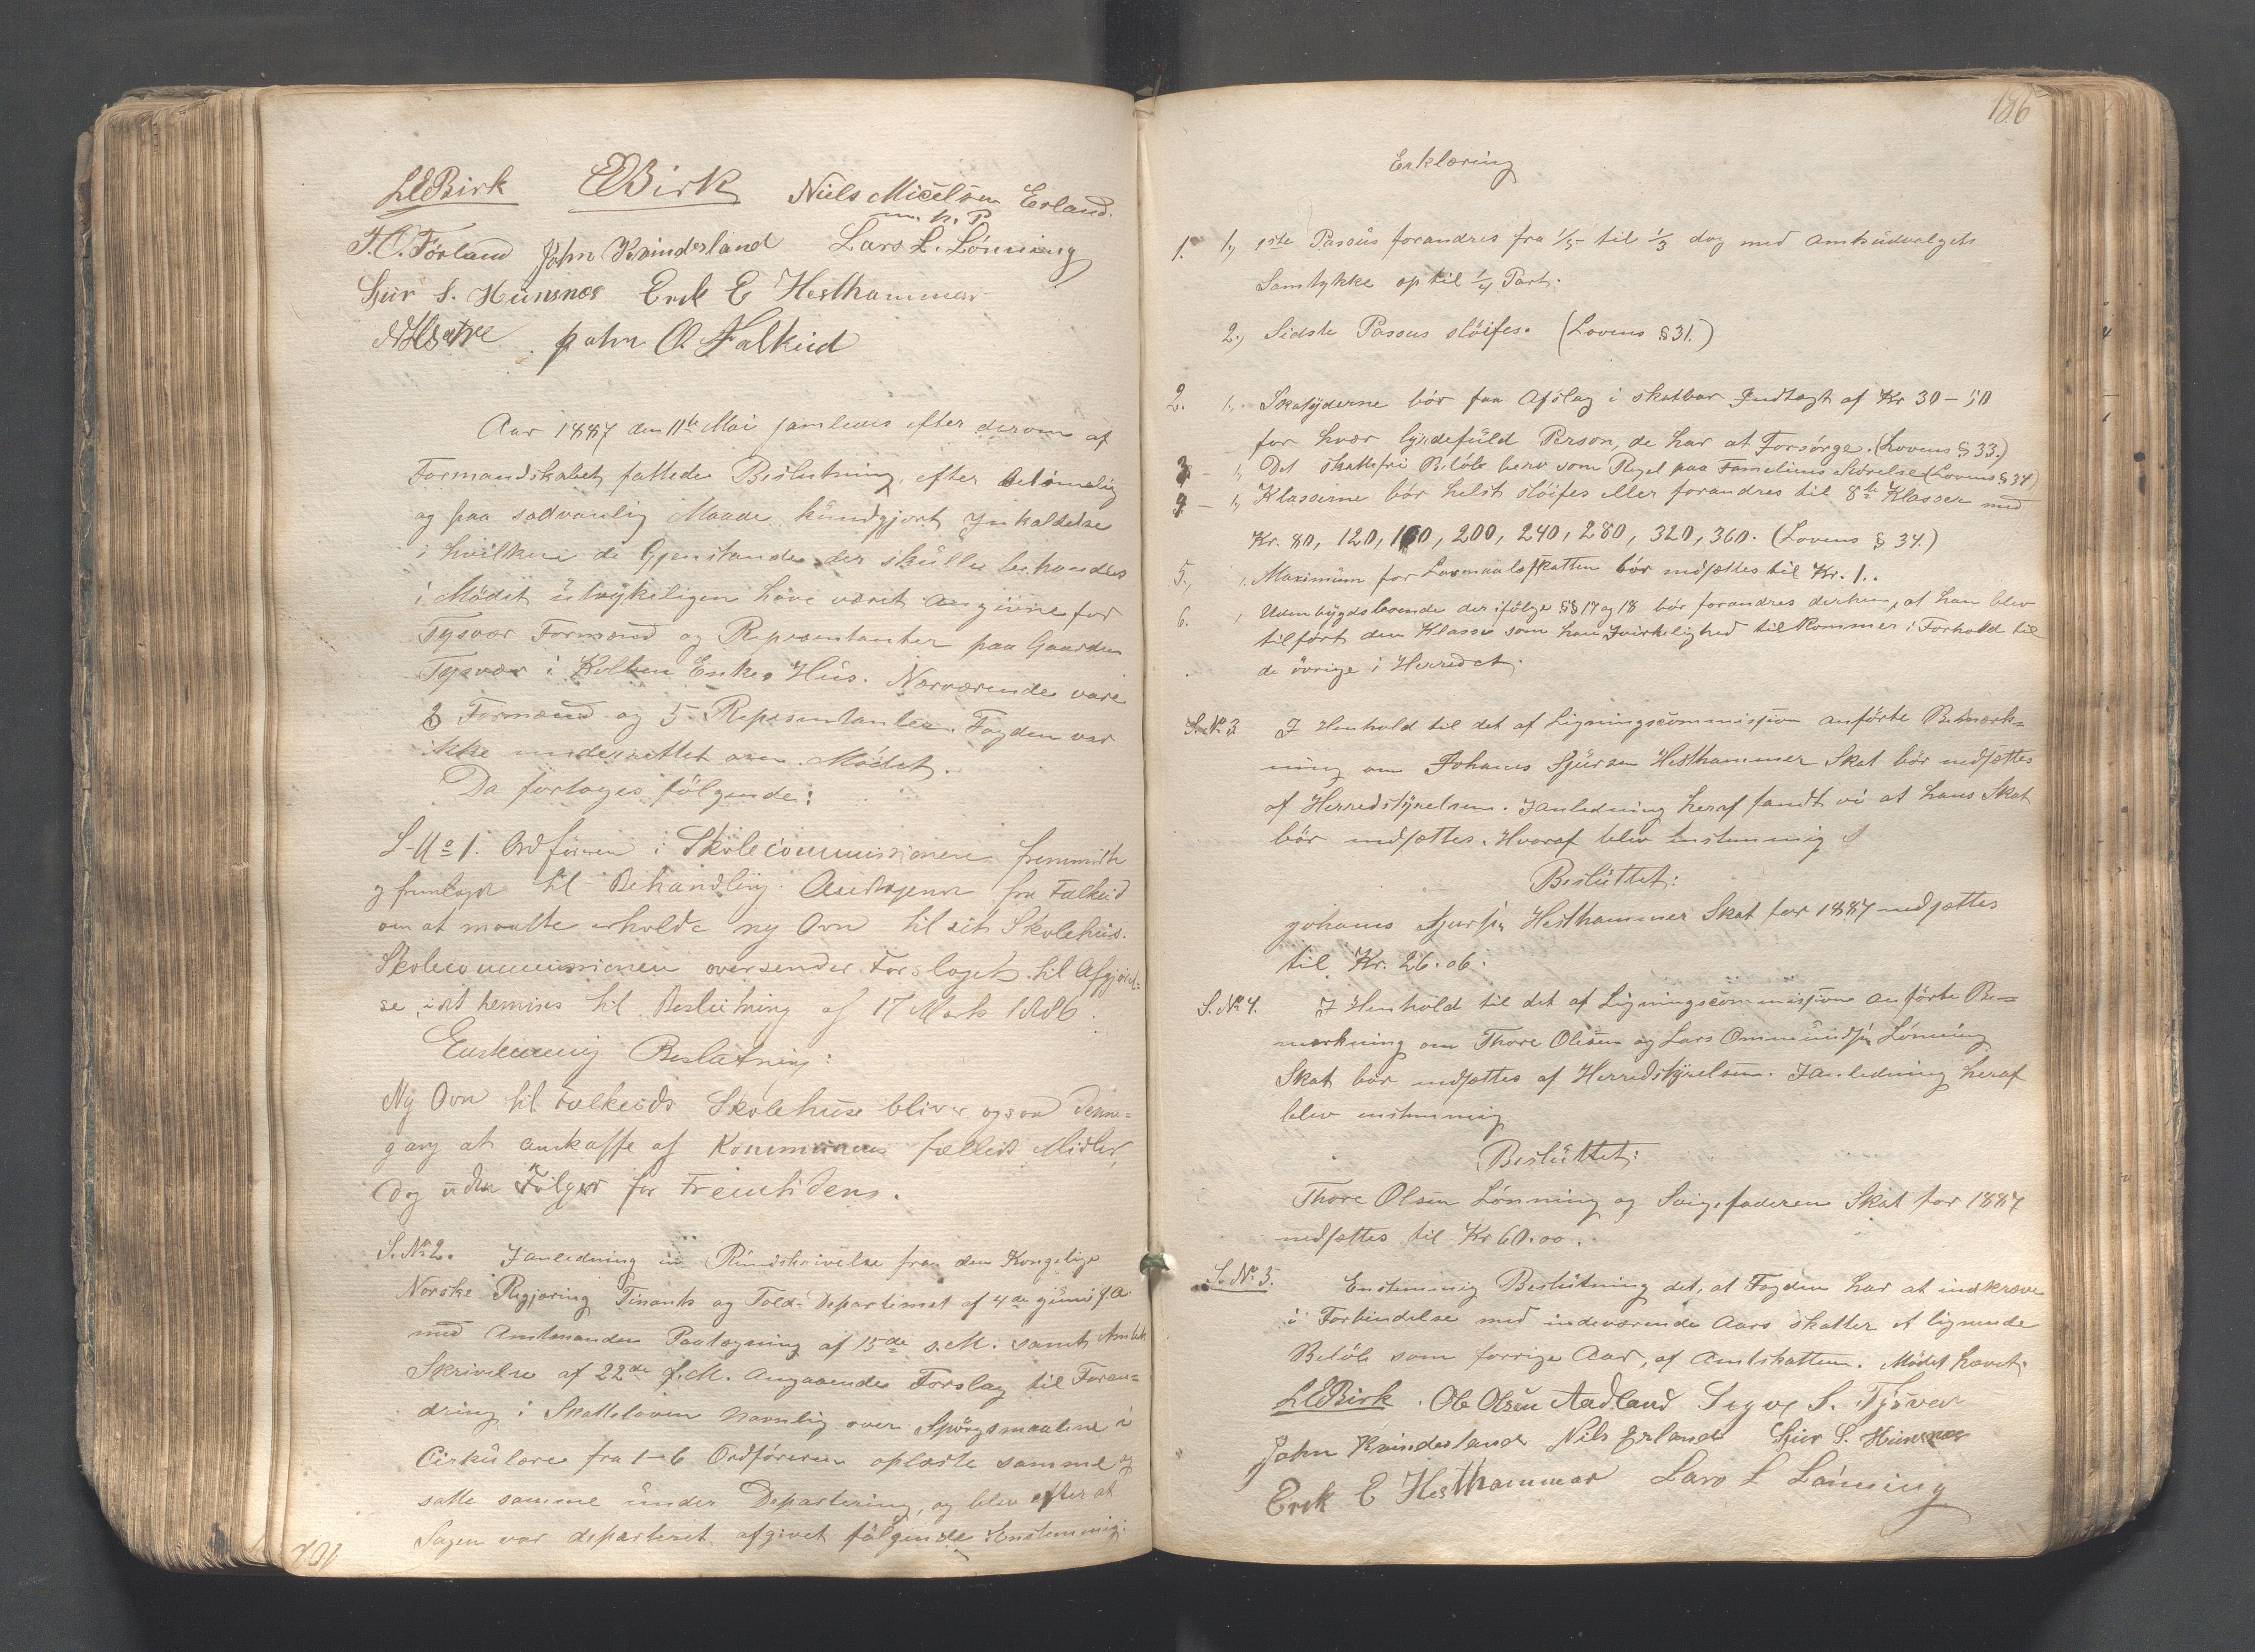 LEBirk EBirk Niels Micelsen Erland.
m. h. P
T.O. Førland John Kvinderland Lars L. Lønning
Sjur S. Hünsnes Erek E Hesthammar
John O. Falkeid
Aar 1887 den 11te Mai samledes efter derom af
Formandskabet fattede Beslutning, efter betimelig
og paa sædvanlig Maade kündgjort Inkaldelse
i hvilken de Gjenstande der skülle behandles
i Mødet üdtrykeligen have været angivne for
Tysvær Formænd og Repræsentanter paa Gaarden
Tysvær i Kolben Enkes Hüs. Nærværende vare
3 Formænd og 5 Repræsentanter. Fogden var
ikke underrettet om Mødet.
Da fortoges følgende:
S-No 1. Ordføreren i Skolecommissionen fremmødte
og fremlagde til Behandling Andragende fra Falkeid
om at maatte erholde ny Ovn til sit Skolehüs.
Skolecommissionen oversender Forslaget til Afgjørel-
se, idet henvises til Beslütning af 17 Marts 1886.
Enstemmig Beslutning:
Ny Ovn til Falkeids Skolehüse bliver ogsaa denne-
gang at anskaffe af Kommunens fælleds Midler,
dog üden Følger for Fremtiden.
S. No 2. I anledning en Ründskrivelse fra den Kongelige
Norske Regjæring Finants og Told-Departemet af 4de Juni f.A.
med Amtmandens Paategning af 15de s.M. samt Amtets
Skrivelse af 22de f.M. angaaende Forslag til Foran-
dring i Skatteloven navnlig over Spørgsmaalene i
Cirkülære fra 1-6 Ordføreren oplæste samme og
satte samme ünder Departering, og blev efter at
Sagen var departeret afgivet følgende Enstemmig:
186
Erklæring
1. 1., 1ste Passüs forandres fra 1/5 til 1/3 dog med Amtsüdvalgets
Samtykke op til 1/4 Part.
2., Sidste Passus sløifes. (Lovens § 31.)
2. 1., Skatyderne bør faa Afslag i skatbar Indtægt af Kr 30-50
for hvær byrdefüld Person, de har at Forsørge. (Lovens § 33.)
3 - 1, Det skattefri Beløb bero som Regel paa Familiens Størelse (Lovens § 34)
4 - 1, Klasserne bør helst sløifes eller forandres til 8te Klasser med
Kr. 80, 120, 160, 200, 240, 280, 320, 360. (Lovens § 34.)
5., 1. Maximüm for Løsmaalsskatten bør nedsættes til Kr. 1..
6. , Udenbygdsboende der ifølge §§ 17 og 18 bør forandres derhen, at han blev
tilført den Klasse som han i virkelighed tilkommer i Forhold til
de øvrige i Herredet.
S. No. 3 I Henhold til det af Ligningscommissjon anførte Bemærk-
ning om Johanes Sjürsen Hesthammer Skat bør nedsættes
af Herredstyrelsen. I anledning heraf fandt vi at hans Skat
bør nedsættes. Hvoraf blev enstemmig
Beslüttet:
Johanes Sjursen Hesthammer Skat for 1887 nedsættes
til Kr. 26.06.
S. No. 4. I Henhold til det af Ligningscommissjon anførte Be-
mærkning om Thore Olesen og Lars Ommündsen Lønning
Skat bør nedsættes af Herredstyrelsen. I anledning heraf
blev enstemmig
Beslüttet:
Thore Olsen Lønning og Svigefaderen Skat for 1887
nedsættes til Kr 60.00.
S. No. 5. Enstemmig Beslütning det, at Fogden har at indkræve
i Forbindelse med indeværende Aars skatter et lignende
Beløb som forrige Aar, af Amtskatten. Mødet hævet.
LEBirk. Ole Olsen Aadland Sigve S. Tysver
John Kvinderland Nils Erland Sjur S. Hünsnes
Erek E Hesthammar Lars L Lønning